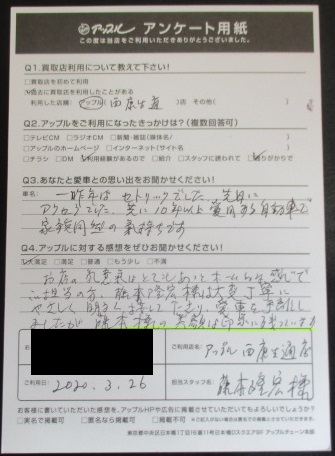 アップル アンケート用紙
この度は当店をご利用いただきありがとうございました。
Q1.買取店利用について教えて下さい!
□買取店を初めて利用
過去に買取店を利用したことがある
利用した店舗: アップル(西康生通)店 その他( )
Q2.アップルをご利用になったきっかけは?(複数回答可)
□テレビCM □ラジオCM □新聞・雑誌(媒体名/ )
□アップルのホームページ □インターネット(サイト名 )
□チラシ □DM 利用経験があるので □紹介 □スタッフに誘われて 通りがかりで
Q3.あなたと愛車との思い出をお聞かせください!
車名: 一昨年は セドリックでした 先日に
アクセラでした。共に10年以上愛用する自動車で
家族同然の気持ちです
Q4.アップルに対する感想をぜひお聞かせください!
大満足 □満足 □普通 □もう少し □不満
お店の
ご担当の方、藤本隆宏様は大変丁寧に
やさしく 明るく接して 愛車を手離し
ましたが 藤本様の笑顔は印象に
お名前
ご利用店名 アップル 西康生通店
ご利用日 2020.3.26
担当スタッフ名 藤本隆宏様
お客様に書いていただいた感想を、アップルHPや広告に掲載させていただいてもよろしいでしょうか?
□実名で掲載可 □匿名なら掲載可 □掲載不可